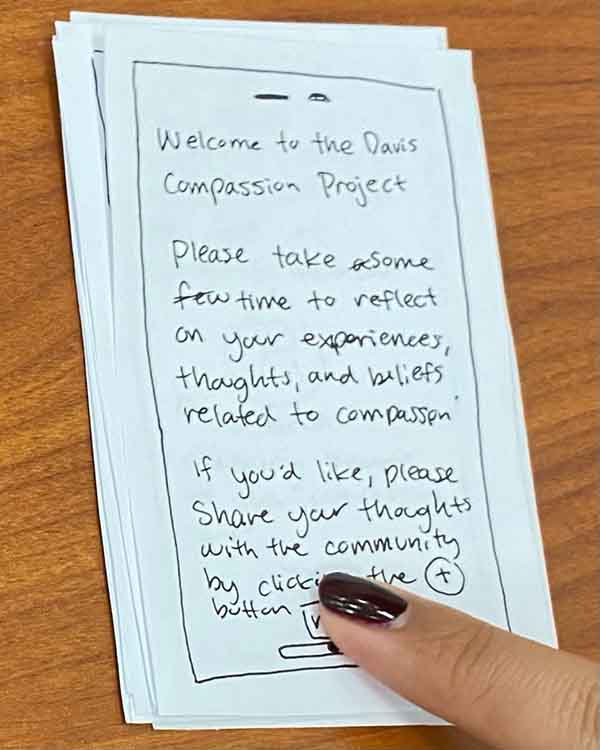 Welcome to the Davis
Compassion Project
Please take some
time to reflect
on your experiences,
thoughts, and beliefs
related to compasson
If you'd like, please
Share your thoughts
with the community
by the +
button